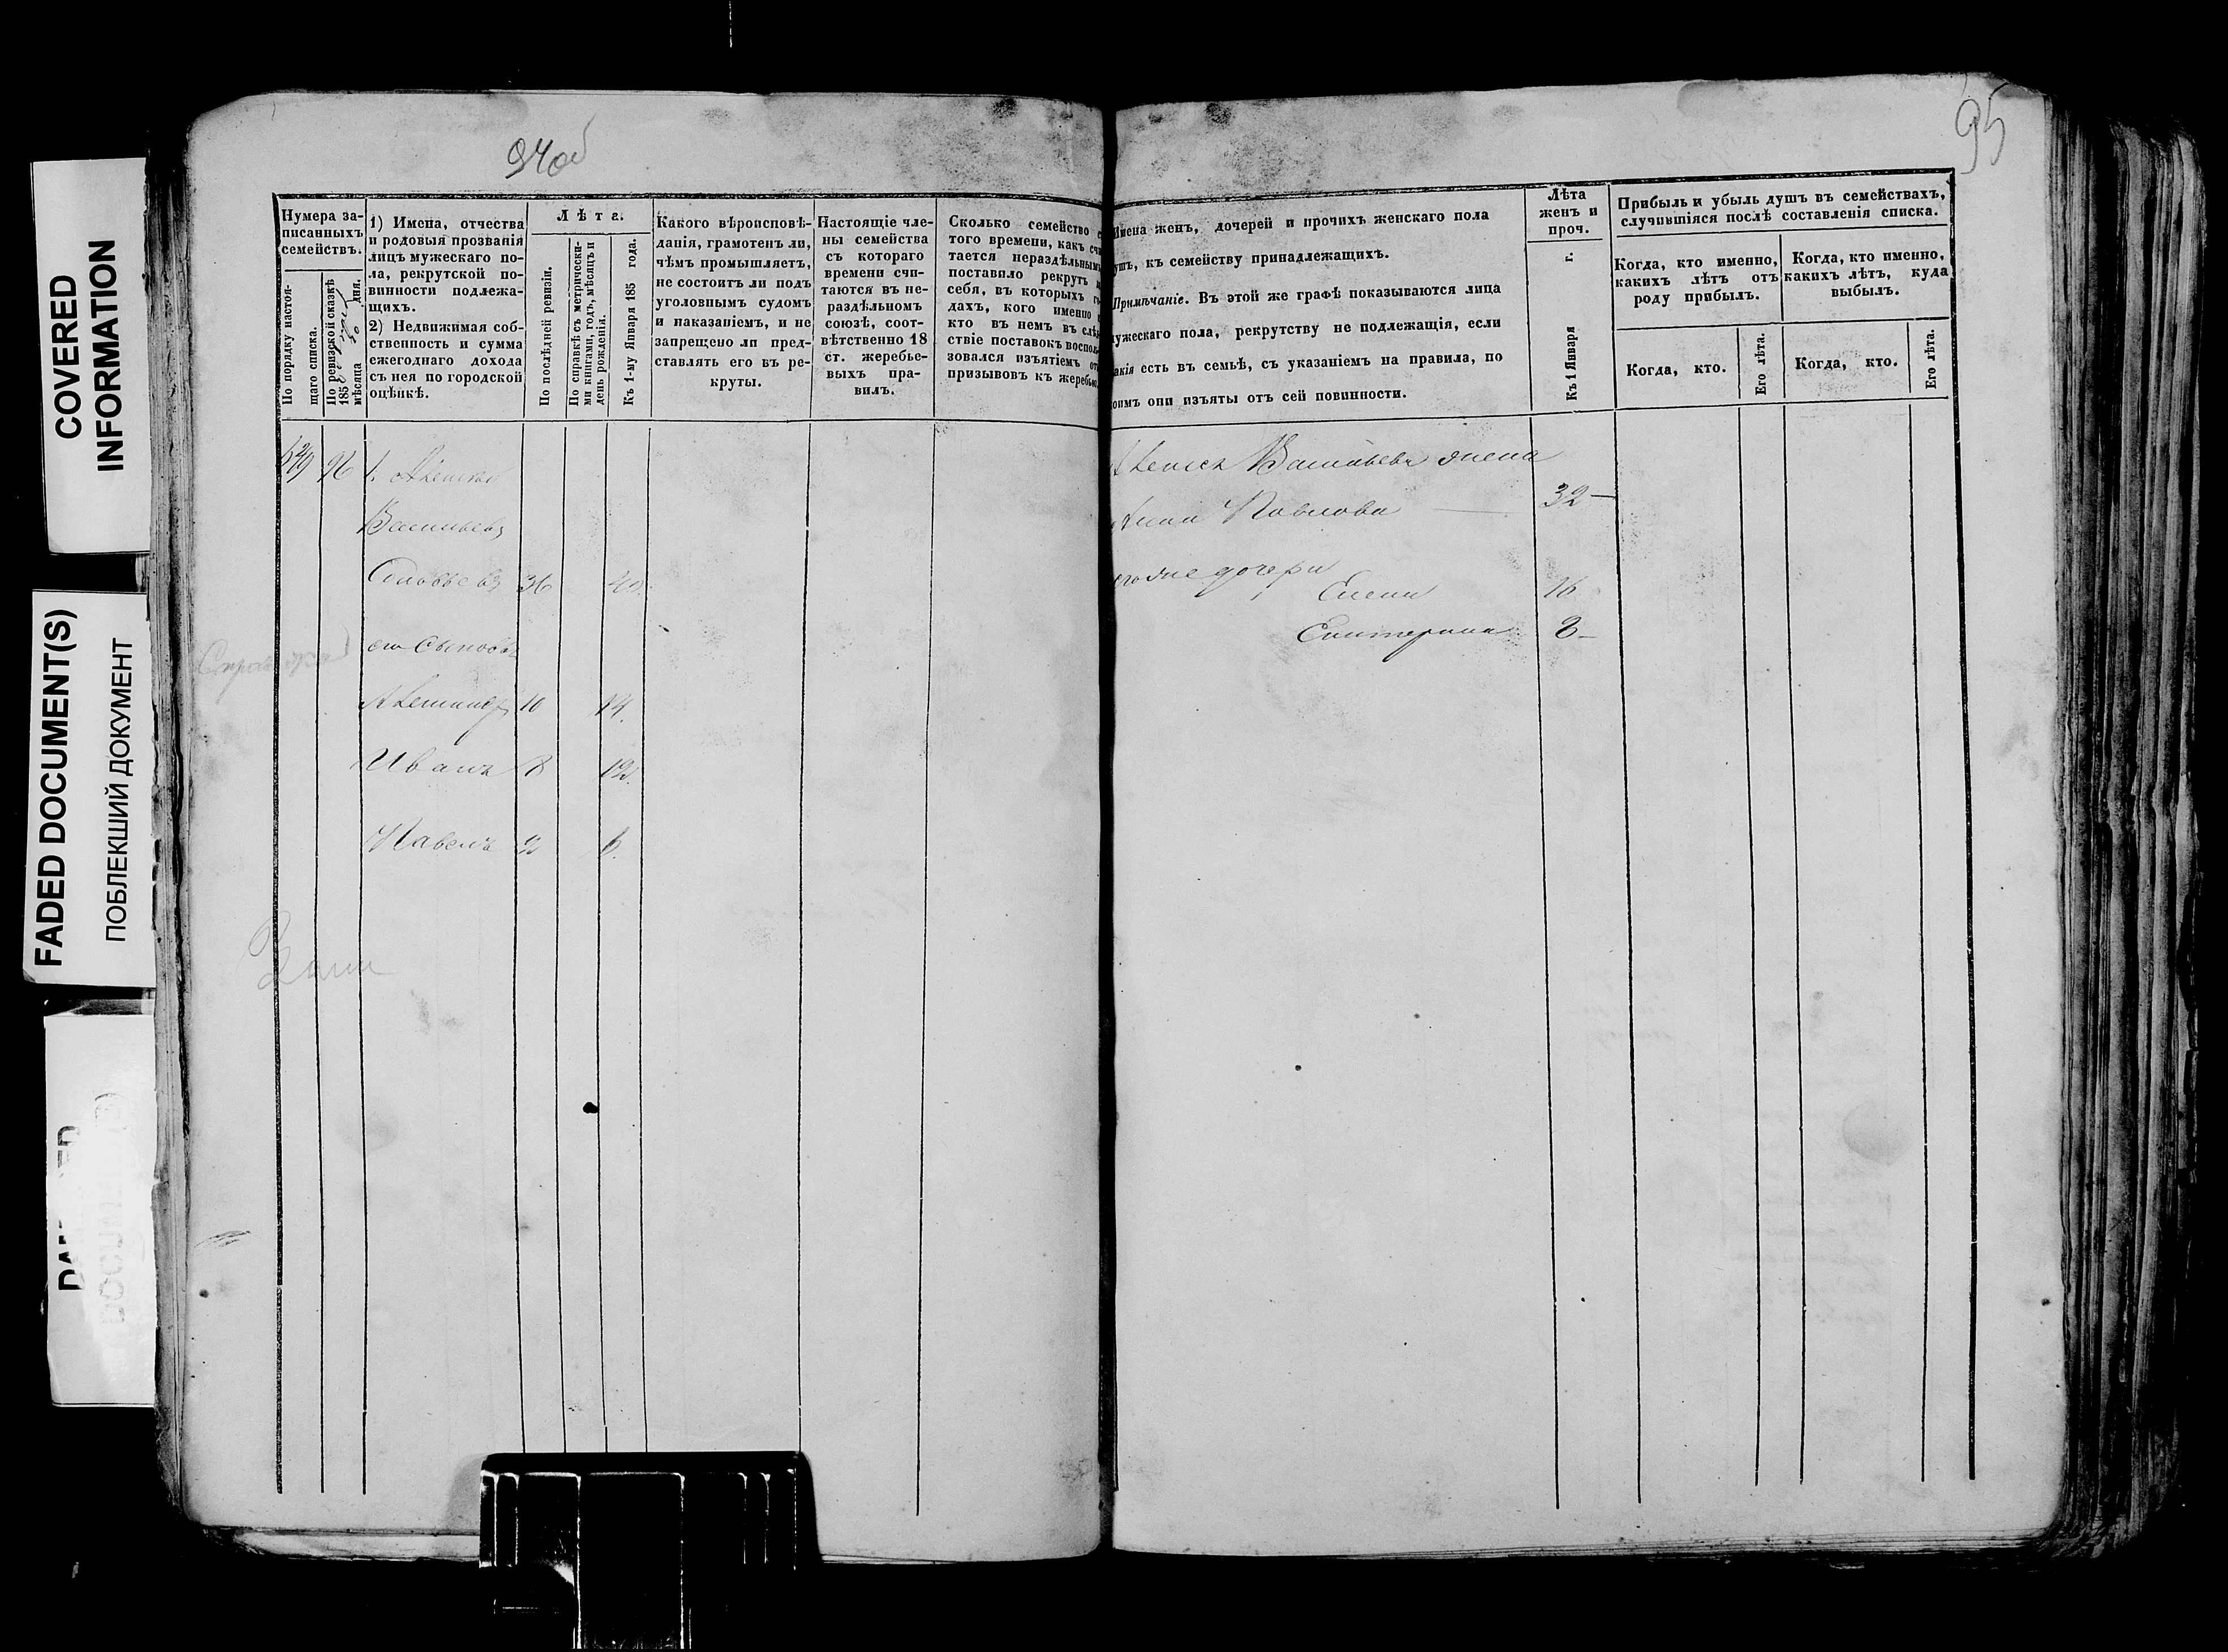 94об
95
COVERED
INFORMATION
FADED DOCUMENT(S)
ПОБЛЕКШИЙ ДОКУМЕНТ
Нумера за-
писанныхъ
семействъ.
По порядку настоя-
щаго списка.
По ревизской сказкѣ
185
мѣсяца 30 дня.
1) Имена, отчества
и родовыя прозванія
лицъ мужескаго по-
ла, рекрутской по-
винности подлежа-
щихъ.
2) Недвижимая соб-
ственность и сумма
ежегоднаго дохода
съ нея по городской
оцѣнкѣ.
Лѣта.
По послѣдней ревизіи.
По справкѣ съ метрически-
ми книгами, годъ, мѣсяцъ и
день рожденія.
Къ 1-му Января 185 года.
Какого вѣроисповѣ-
данія, грамотенъ ли,
чѣмъ промышляетъ,
не состоитъ ли подъ
уголовнымъ судомъ
и наказаніемъ, и не
запрещено ли пред-
ставлять его въ ре-
круты.
Настоящіе чле-
ны семейства
съ котораго
времени счи-
таются въ не-
раздѣльномъ
союзѣ, соот-
вѣтственно 18
ст. жеребье-
выхъ пра-
вилъ.
Сколько семейство с
того времени, какъ счи
тается нераздѣльнымъ
поставило рекрутъ
себя, въ которыхъ г
дахъ, кого именно
кто въ немъ въ слѣд
ствіе поставокъ воспол
зовался изъятіемъ от
призывовъ къ жеребью.
Имена женъ, дочерей и прочихъ женскаго пола
ушъ, къ семейству принадлежащихъ.
Примѣчаніе. Въ этой же графѣ показываются лица
ужескаго пола, рекрутству не подлежащія, если
акія есть въ семьѣ, съ указаніемъ на правила, по
оимъ они изъяты отъ сей повинности.
Лѣта
женъ и
проч.
Къ 1 Января г.
Прибыль и убыль душъ въ семействахъ,
случившіяся послѣ составленія списка.
Когда, кто именно,
какихъ лѣтъ отъ
роду прибылъ.
Когда, кто именно,
какихъ лѣтъ, куда
выбылъ.
Когда, кто.
Его лѣта.
Когда, кто.
Его лѣта.
96 1. Алексѣй
Васильевъ
Соловьевъ 36 40.
его сыновья
Александръ 10 14.
Иванъ 8 12.
Павелъ 2 6.
Алексѣя Васильева жена
Анна Павлова 32
его же дочери
Елена 16
Екатерина 8